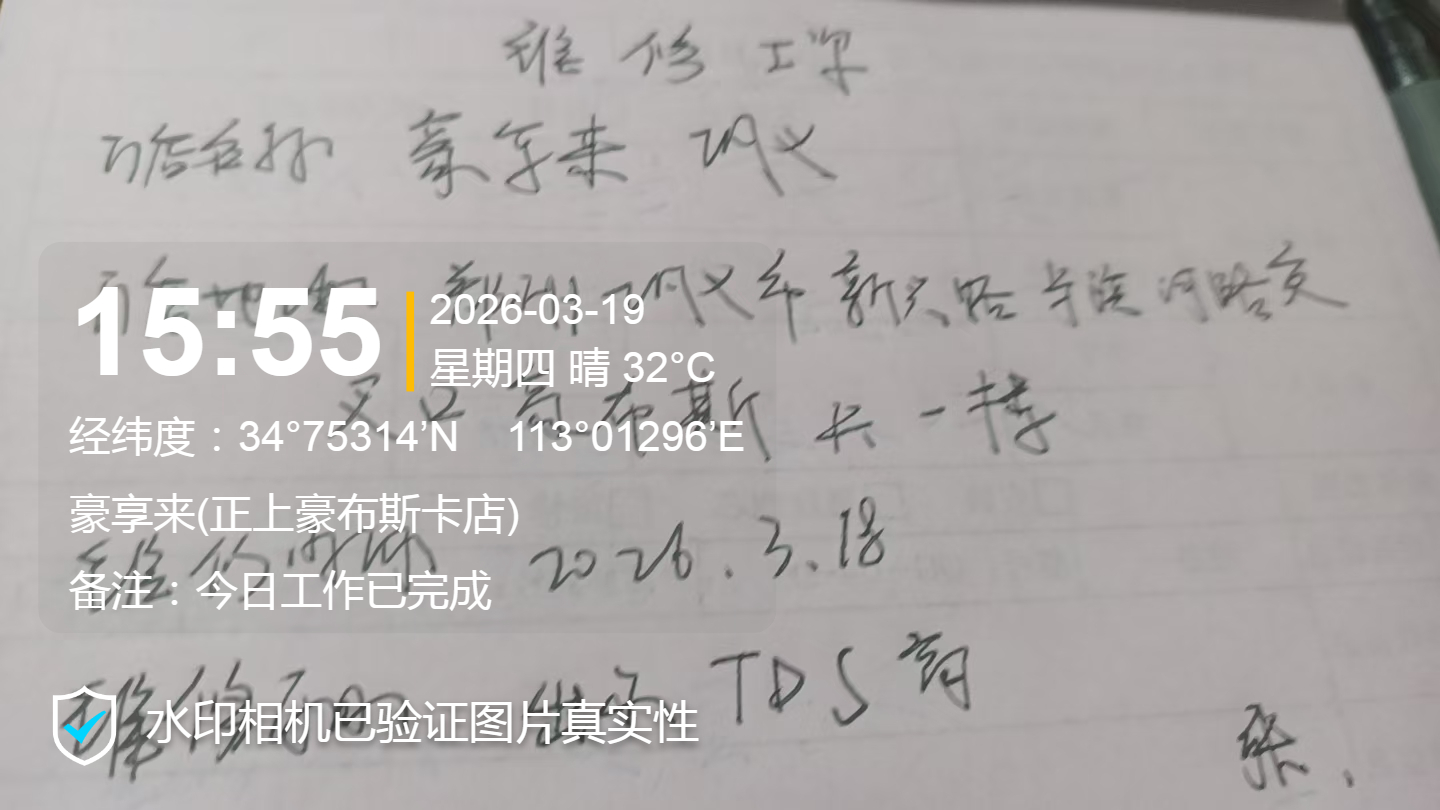 维修工单
门店名称 豪享来 巩义
门店地址 郑州巩义市新兴路与滨河路交
叉口豪布斯卡一楼
15:55
2026-03-19
星期四 晴 32°C
经纬度：34°75314’N 113°01296’E
豪享来(正上豪布斯卡店)
维修时间 2026.3.18
备注：今日工作已完成
维修 TDS高
水印相机已验证图片真实性